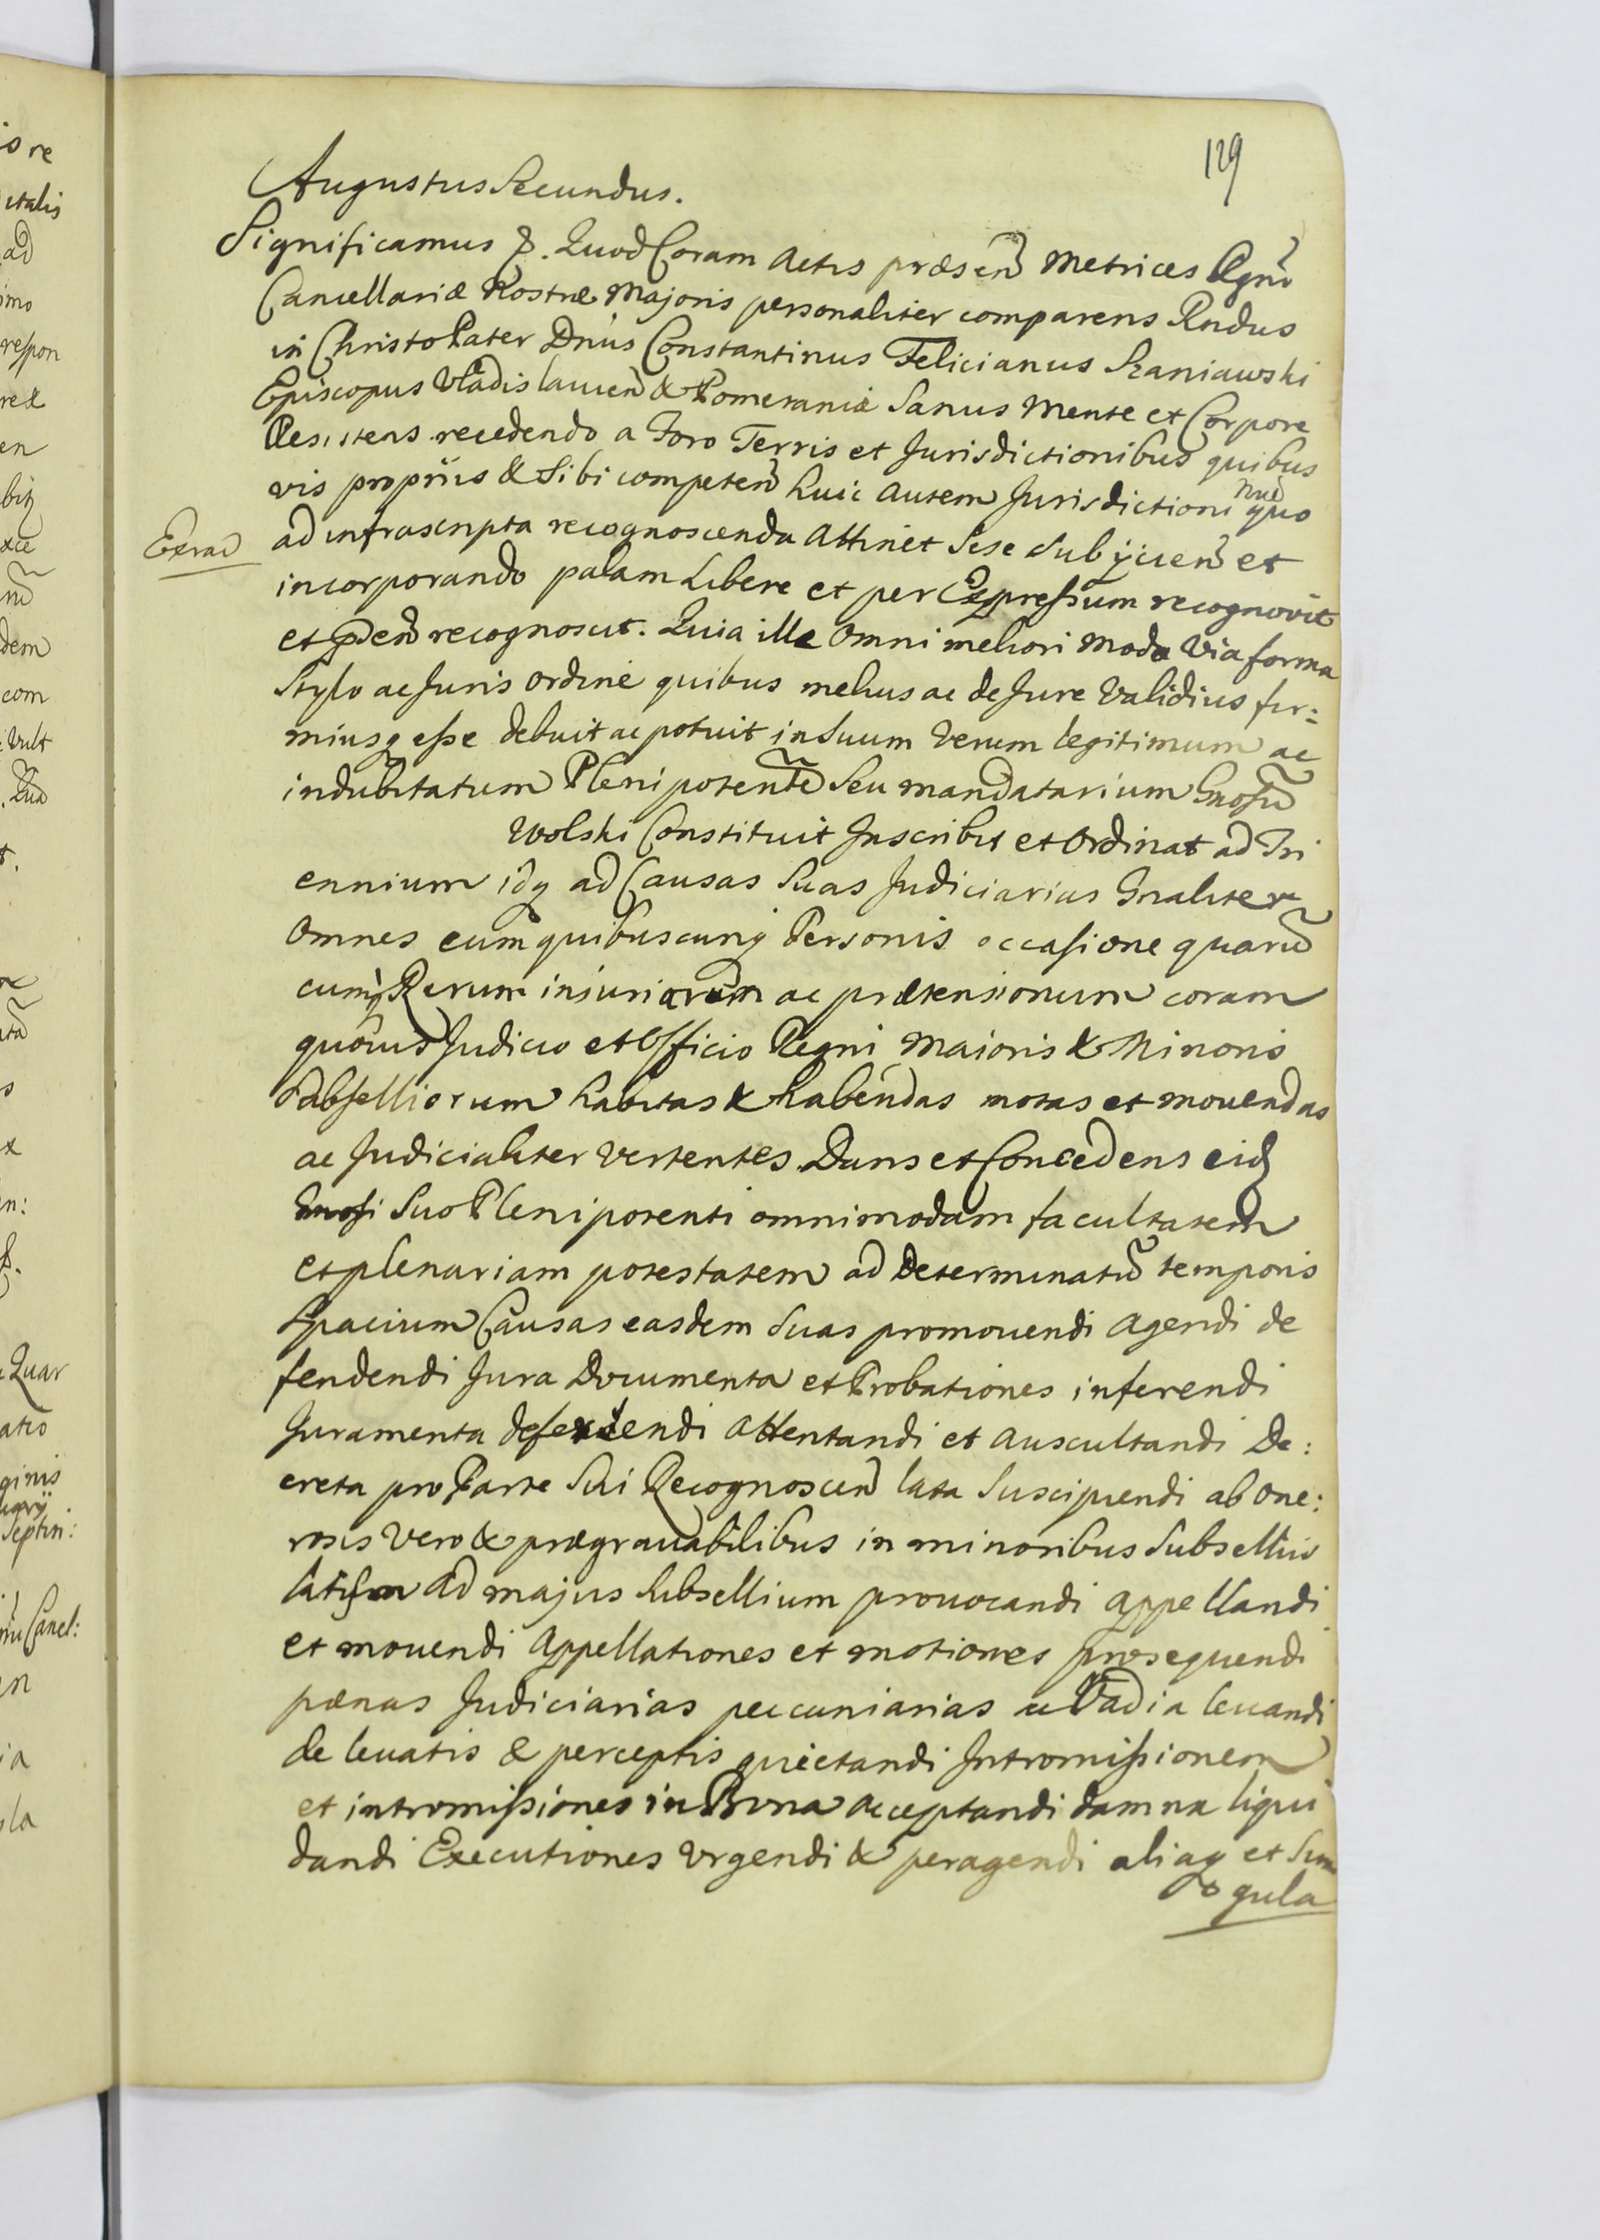 129
Augustus Secundus.
Significamus &. Quod Coram Actis præsen Metrices Regni
Cancellariæ Nostræ Majoris personaliter comparens Rndus
in Christo Pater Dnus Constantinus Felicianus Szaniawski
Episcopus Vladislauien & Pomeraniæ Sanus Mente et Corpore
Existens recedendo a Foro Terris et Jurisdictionibus quibus
vis proprijs & Sibi competen huic autem Jurisdictioni quo
ad infrascripta recognoscenda attinet Sese Subijcien et
Extrad
incorporando palam Libere et per Expressum recognovit
et recognoscit. Quia ille Omni meliori Modo Via forma
Stylo ac Juris Ordine quibus melius ac de Jure Validius fir:
miusq esse debuit ac potuit in Suum Verum legitimum ac
indubitatum Plenipotente Seu mandatarium Gnosu
Wolski Constituit Inscribit et Ordinat ad Tri
ennium idq ad Causas Suas Judiciarias Gnaliter
Omnes cum quibuscunq Personis occasione quaru
cunq Rerum iniuriarum ac prætensionum coram
quovis Judicio et Officio Regni Maioris & Minoris
Subselliorum habitas & habendas motas et movendas
ac Judicialiter vertentes. Dans et Concedens eid
Gnosi Suo Plenipotenti omnimodam facultatem
et plenariam potestatem ad Determinatu temporis
Spacium Causas easdem Suas promovendi Agendi de
fendendi Jura Documenta et Probationes inferendi
Juramenta deferendi Attentandi et Auscultandi De:
creta pro Parte Sui Recognoscen lata Suscipiendi ab One:
rosis Vero & prægravabilibus in minoribus Subsellijs
latis ad majus Subsellium provocandi Appellandi
et movendi Appellationes et motiones prosequendi
pænas Judiciarias peccuniarias ac Vadia levandi
de levatis & perceptis quietandi Intromissionem
et intromissiones in Bona acceptandi damna liqui
dandi Executiones Urgendi & peragendi aliaq et Sin
gula